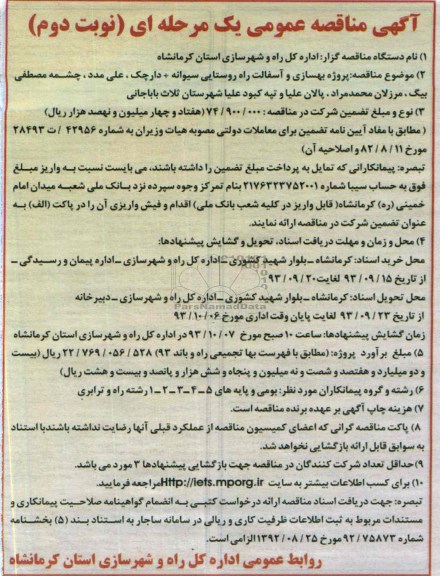 آگهی مناقصه عمومی یک مرحله ای (نوبت دوم)
۱) نام دستگاه مناقصه گزار: اداره کل راه و شهرسازی استان کرمانشاه
۲) موضوع مناقصه: پروژه بهسازی و آسفالت راه روستایی سیوانه + دارچک ، علی مدد ، چشمه مصطفی
بیگ ، مرزلان محمدمراد ، پالان علیا و تپه کبود علیا شهرستان ثلاث باباجانی
۳) نوع و مبلغ تضمین شرکت در مناقصه : ۷۴/۹۰۰/۰۰۰ (هفتاد و چهار میلیون و نهصد هزار ریال)
( مطابق با مفاد آیین نامه تضمین برای معاملات دولتی مصوبه هیات وزیران به شماره ۴۲۹۵۶ / ت ۲۸۴۹۳
مورخ ۸۲/۸/۱۱ و اصلاحیه آن)
تبصره: پیمانکارانی که تمایل به پرداخت مبلغ تضمین را داشته باشند، می بایست نسبت به واریز مبلغ
فوق به حساب سیبا شماره ۲۱۷۶۳۲۳۷۵۲۰۰۱ بنام تمرکز وجوه سپرده نزد بانک ملی شعبه میدان امام
خمینی (ره) کرمانشاه( قابل واریز در کلیه شعب بانک ملی) اقدام و فیش واریزی آن را در پاکت (الف) به
عنوان تضمین شرکت در مناقصه ارائه نمایند.
۴) محل و زمان و مهلت دریافت اسناد، تحویل و گشایش پیشنهادها:
محل خرید اسناد: کرمانشاه ـ بلوار شهید کشوری ـ اداره کل راه و شهرسازی ـ اداره پیمان و رسیدگی ـ
از تاریخ ۹۳/۰۹/۱۵ لغایت ۹۳/۰۹/۲۰
محل تحویل اسناد: کرمانشاه ـ بلوار شهید کشوری ـ اداره کل راه و شهرسازی ـ دبیرخانه
از تاریخ ۹۳/۰۹/۲۳ لغایت پایان وقت اداری مورخ ۹۳/۱۰/۰۶
زمان گشایش پیشنهادها: ساعت ۱۰ صبح مورخ ۹۳/۱۰/۰۷ در اداره کل راه و شهرسازی استان کرمانشاه
۵) مبلغ برآورد پروژه: (مطابق با فهرست بها تجمیعی راه و باند ۹۳) ۲۲/۷۶۹/۰۵۶/۵۲۸ ریال (بیست
و دو میلیارد و هفتصد و شصت و نه میلیون و پنجاه و شش هزار و پانصد و بیست و هشت ریال)
۶) رشته و گروه پیمانکاران مورد نظر: بومی و پایه های ۵ـ۴ـ۳ـ۲ـ۱ رشته راه و ترابری
۷) هزینه چاپ آگهی بر عهده برنده مناقصه است.
۸) پاکت مناقصه گرانی که اعضای کمیسیون مناقصه از عملکرد قبلی آنها رضایت نداشته باشند با استناد
به سوابق قابل ارائه بازگشایی نخواهد شد.
۹) حداقل تعداد شرکت کنندگان در مناقصه جهت بازگشایی پیشنهادها ۳ مورد می باشد.
۱۰) برای کسب اطلاعات بیشتر به سایت Http://iets.mporg.ir مراجعه فرمایید.
تبصره: جهت دریافت اسناد مناقصه ارائه درخواست کتبی به انضمام گواهینامه صلاحیت پیمانکاری و
مستندات مربوط به ثبت اطلاعات ظرفیت کاری و ریالی در سامانه ساجار به استناد بند (۵) بخشنامه
شماره ۹۲/۷۵۸۷۳ مورخ ۱۳۹۲/۰۸/۲۵ الزامی است.
روابط عمومی اداره کل راه و شهرسازی استان کرمانشاه